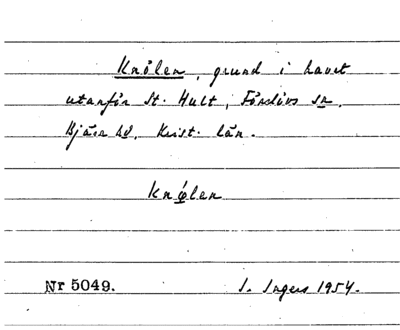 Knölen, grund i havet
utanför St. Hult, Förslövs sn.
Bjäre hd, Krist. län.
Knölen
Nr 5049. I. Ingers 1954.